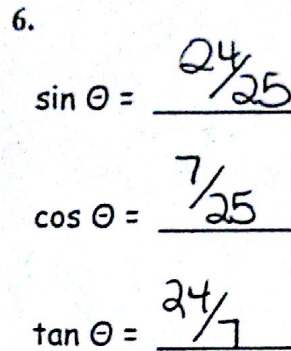 6.
sin Θ = 24/25
cos Θ = 7/25
tan Θ = 24/7